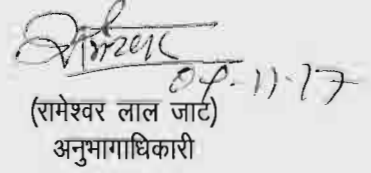 11-17
(रामेश्वर लाल जाट)
अनुभागाधिकारी